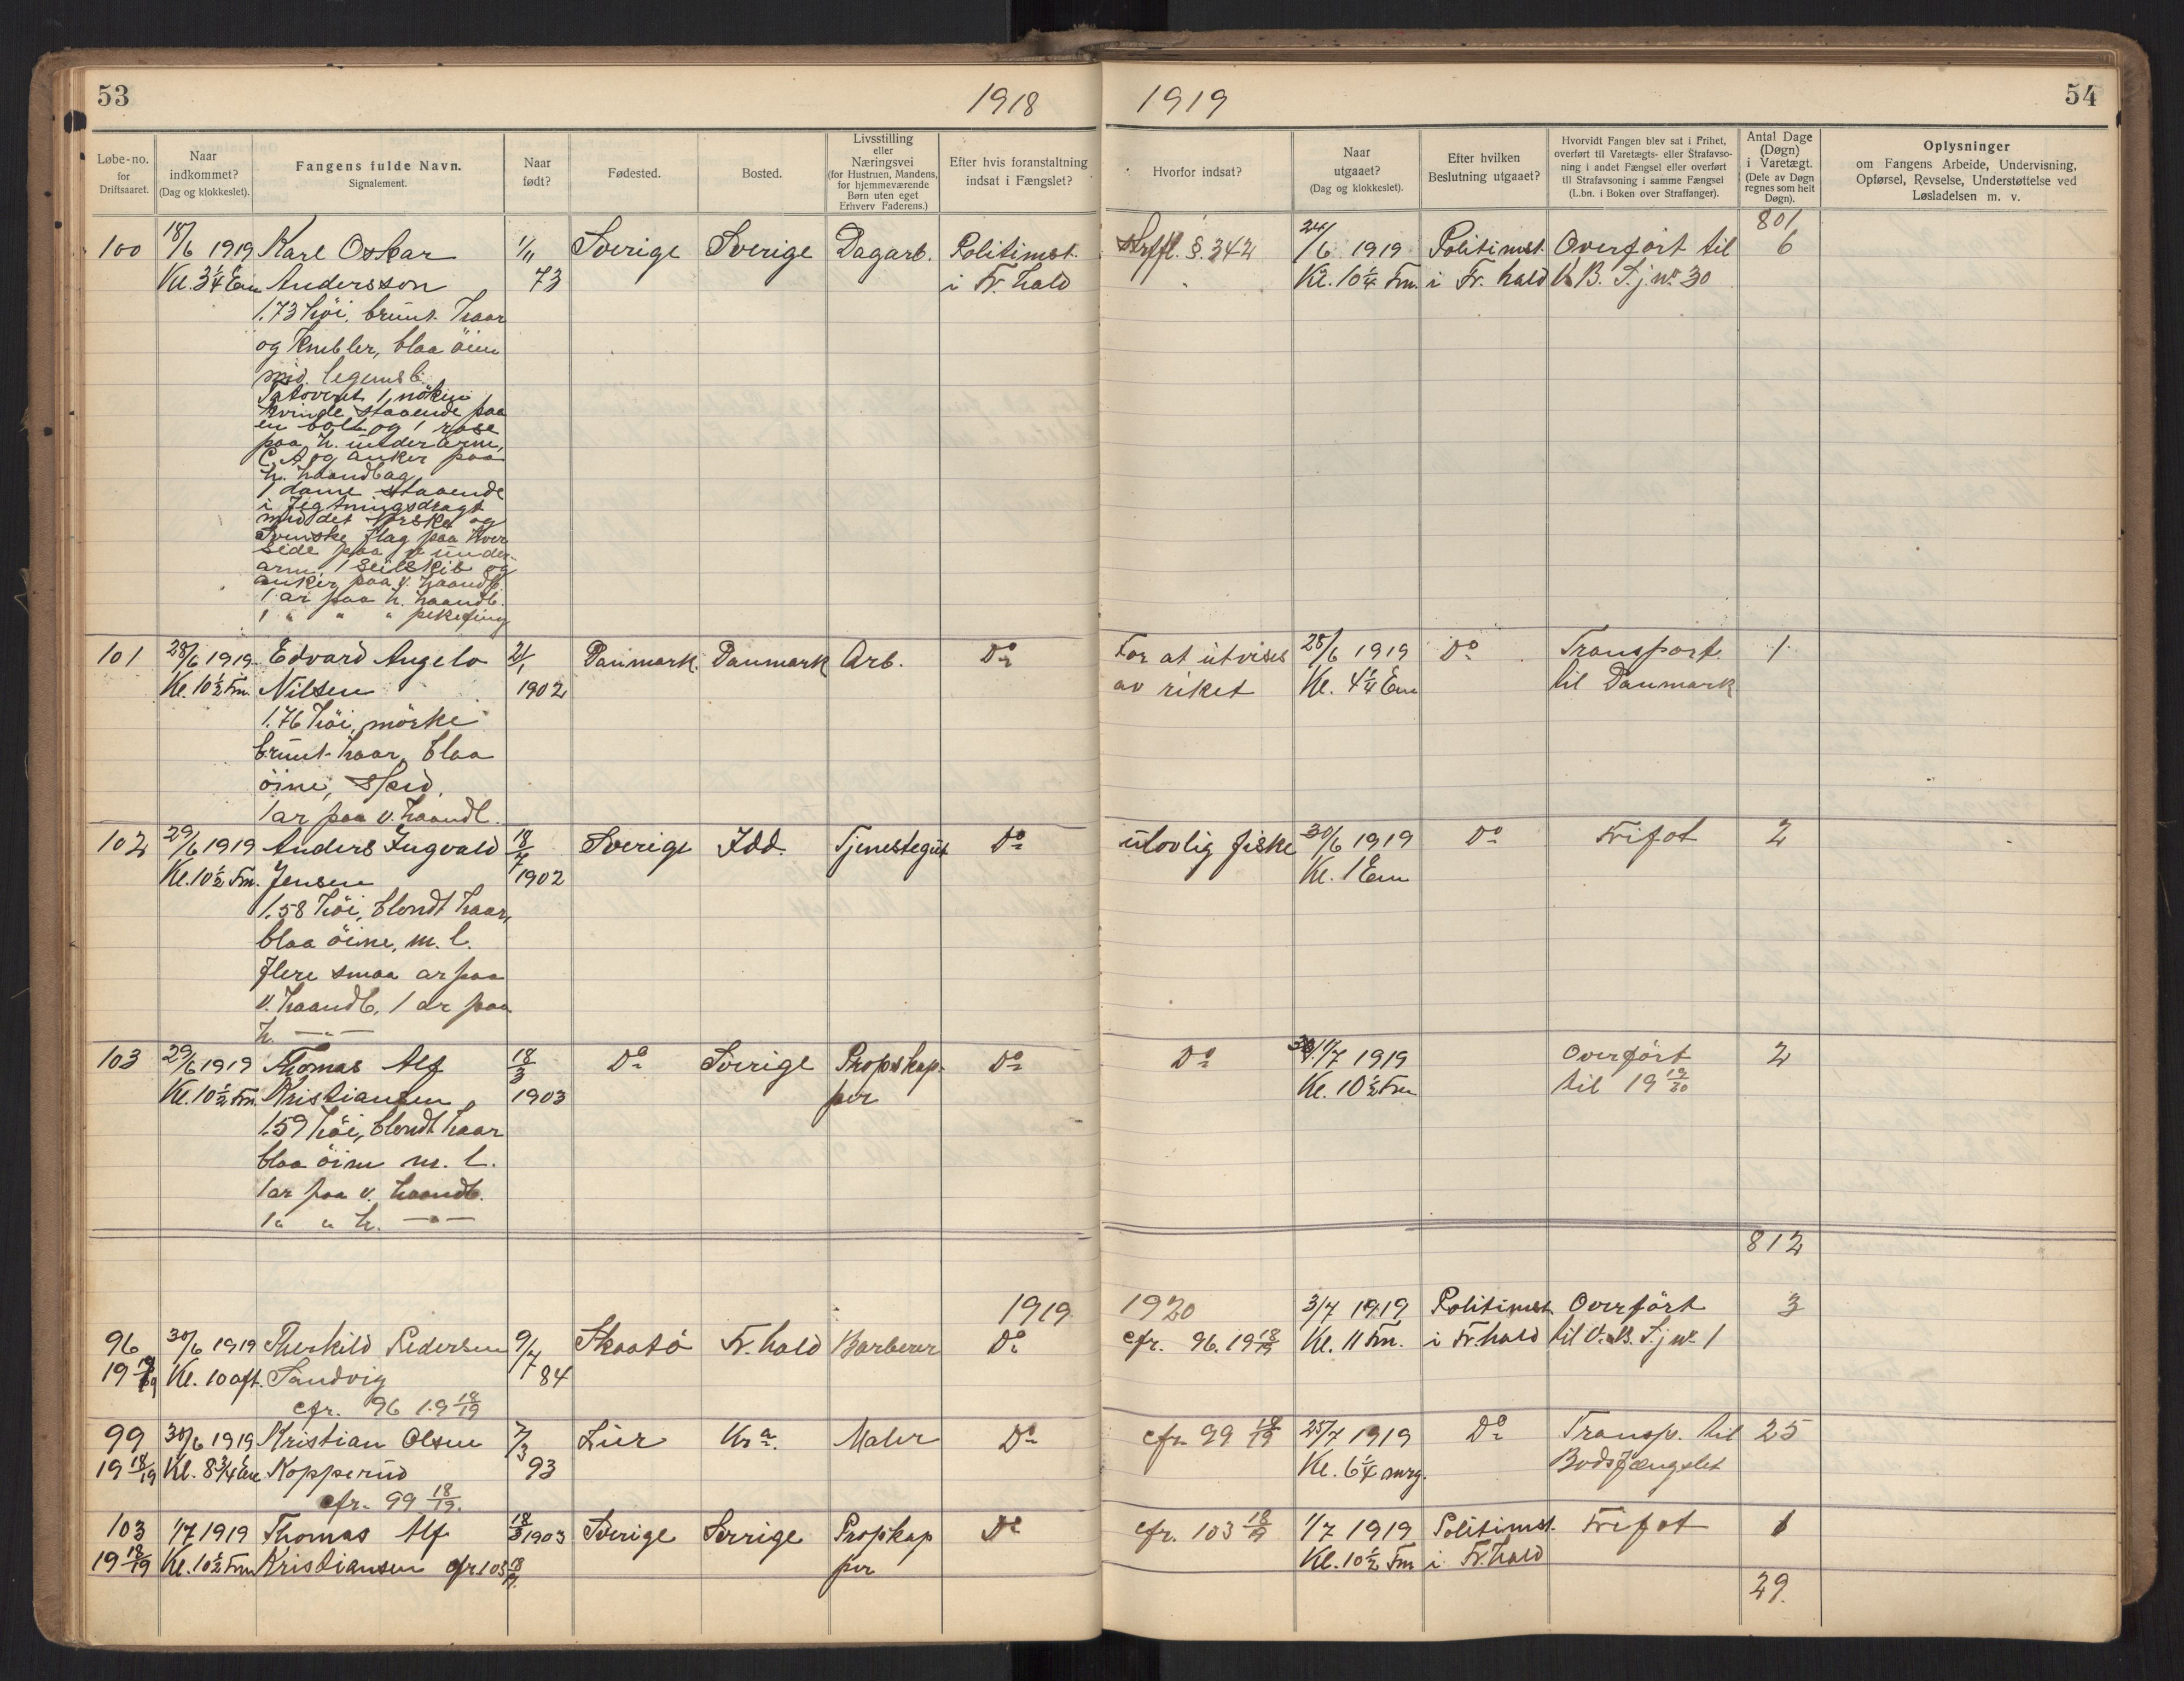 53
1918
Løbe-no.
for
Driftsaaret.
Naar
indkommet?
(Dag og klokkeslet).
Fangens fulde Navn.
Signalement.
Naar
født?
Fødested.
Bosted.
Livsstilling
eller
Næringsvei
(for Hustruen, Mandens,
for hjemmeværende
Børn uten eget
Erhverv Faderens.)
Efter hvis foranstaltning
indsat i Fængslet?
100 18/6 1919 Karl Oskar 1/11 Sverige Sverige Dagarb. Politimst.
Kl. 3 1/4 Em Andersson 73 i Fr.hald
1.73 höi, brunt haar
og knebler, blaa öine
mid. legemsb.
Tatoveret 1 nöken
kvinde staaende paa
en bolt og 1 rose
paa h. underarm,
C. A og anker paa
h. haandbag
1 dame staaende
i Fegtningsdragt
med det norske og
Svenske flag paa hver
side paa v under-
arm, 1 Seilskib og
anker paa v. haandb.
1 ar paa h. haandb.
1 " " " pekefing
101 28/6 1919 Edvard Angelo 21/1 Danmark Danmark Arb. Do
Kl. 10 1/2 Fm. Nilsen 1902
1.76 höi, mörke
brunt haar, blaa
öine, sped.
1 ar paa v. haandl.
102 29/6 1919 Anders Ingvald 18/7 Sverige Idd. Tjenestegut Do
Kl. 10 1/2 Fm. Jensen 1902
1.58 höi, blondt haar,
blaa öine, m. l.
flere smaa ar paa
v. haandb. 1 ar paa
h. —"—
103 29/6 1919 Thomas Alf 18/3 Do Sverige Propskap- Do
Kl. 10 1/2 Fm. Kristiansen 1903 per
1.59 höi, blondt haar
blaa öine m. l.
1 ar paa v. haandb.
1 " " h. —"—
1919
96 30/6 1919 Therkild Pedersen 9/7 Skaatö Fr.hald Barberer Do
19 18/19 Kl. 10 aft. Sandvig 84
cfr. 96 19 18/19
99 30/6 1919 Kristian Olsen 7/3 Lier Kra. Maler Do
19 18/19 Kl. 8 3/4 Em Kopperud 93
cfr. 99 18/19.
103 1/7 1919 Thomas Alf 18/3 1903 Sverige Sverige Propskap Do
19 18/19 Kl. 10 1/2 Fm Kristiansen cfr. 103 18/19 per
54
1919
Hvorfor indsat?
Naar
utgaaet?
(Dag og klokkeslet).
Efter hvilken
Beslutning utgaaet?
Hvorvidt Fangen blev sat i Frihet,
overført til Varetægts- eller Strafavso-
ning i andet Fængsel eller overført
til Strafavsoning i samme Fængsel
(L.bn. i Boken over Straffanger).
Antal Dage
(Døgn)
i Varetægt.
(Dele av Døgn
regnes som helt
Døgn).
Oplysninger
om Fangens Arbeide, Undervisning,
Opførsel, Revselse, Understøttelse ved
Løsladelsen m. v.
801
Strffl. §. 342 24/6 1919 Politimst. Overfört til 6
Kl. 10 1/4 Fm. i Fr. hald V. B. F. j. nr. 30
For at utvises 28/6 1919 Do Transport 1
av riket Kl. 4 1/4 Em til Danmark
ulovlig fiske 30/6 1919 Do Frifot 2
Kl. 1 Em
Do 1/7 1919 Overfört 2
Kl. 10 1/2 Fm til 19 19/20
812
1920 3/7 1919 Politimst. Overfört 3
cfr. 96. 19 18/19 Kl. 11 Fm. i Fr.hald til V. B. F. j nr. 1
cfr. 99 18/19 25/7 1919 Do Transp. til 25
Kl. 6 1/4 mrg. Bodsfængslet
cfr. 103 18/19 1/7 1919 Politimst. Frifot 1
Kl. 10 1/2 Fm i Fr.hald
29.